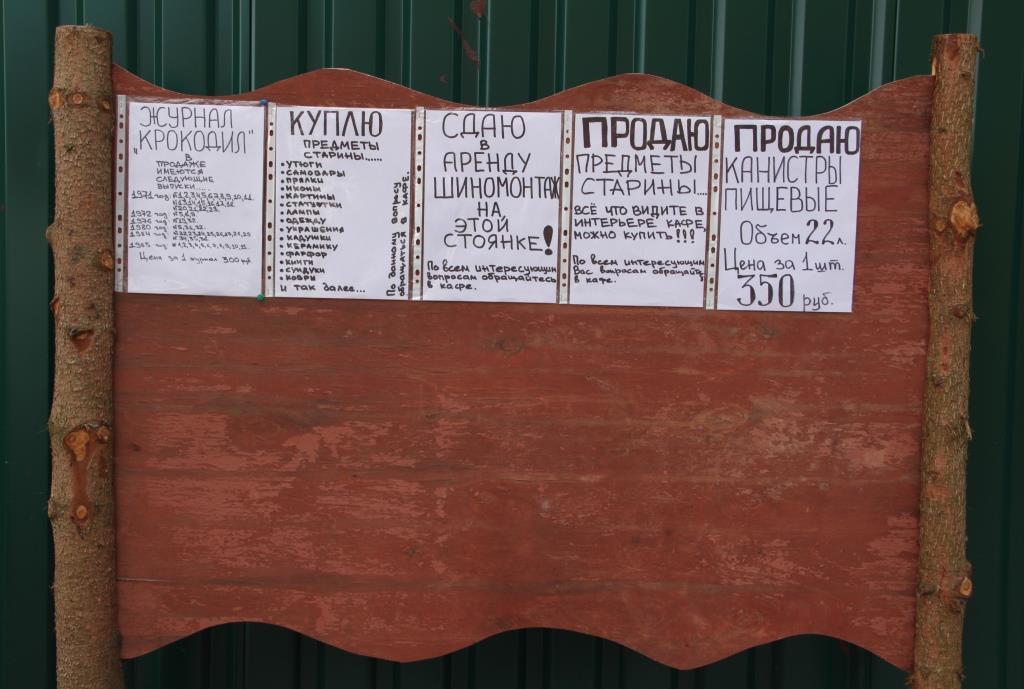 ЖУРНАЛ
„КРОКОДИЛ"
В
ПРОДАЖЕ
ИМЕЮТСЯ
СЛЕДУЮЩИЕ
ВЫПУСКИ.....
1971 год:
1972 год:
1976 год:
1980 год:
1984 год:
1985 год:
Цена за 1 журнал 300 руб
КУПЛЮ
ПРЕДМЕТЫ
СТАРИНЫ......
• УТЮГИ
• САМОВАРЫ
• ПРЯЛКИ
• ИКОНЫ
• КАРТИНЫ
• СТАТУЭТКИ
• ЛАМПЫ
• ОДЕЖДУ
• УКРАШЕНИЯ
• КАДУШКИ
• КЕРАМИКУ
• ФАРФОР
• КНИГИ
• СУНДУКИ
• КОВРЫ
и так далее...
По данному вопросу
обращаться в кафе.
СДАЮ
В
АРЕНДУ
ШИНОМОНТАЖ
НА
ЭТОЙ
СТОЯНКЕ!
По всем интересующим
вопросам обращайтесь
в кафе.
ПРОДАЮ
ПРЕДМЕТЫ
СТАРИНЫ....
ВСЁ ЧТО ВИДИТЕ В
ИНТЕРЬЕРЕ КАФЕ,
МОЖНО КУПИТЬ!!!
По всем интересующим
Вас вопросам обращайтесь
в кафе.
ПРОДАЮ
КАНИСТРЫ
ПИЩЕВЫЕ
Объем 22 л.
Цена за 1 шт.
350 руб.